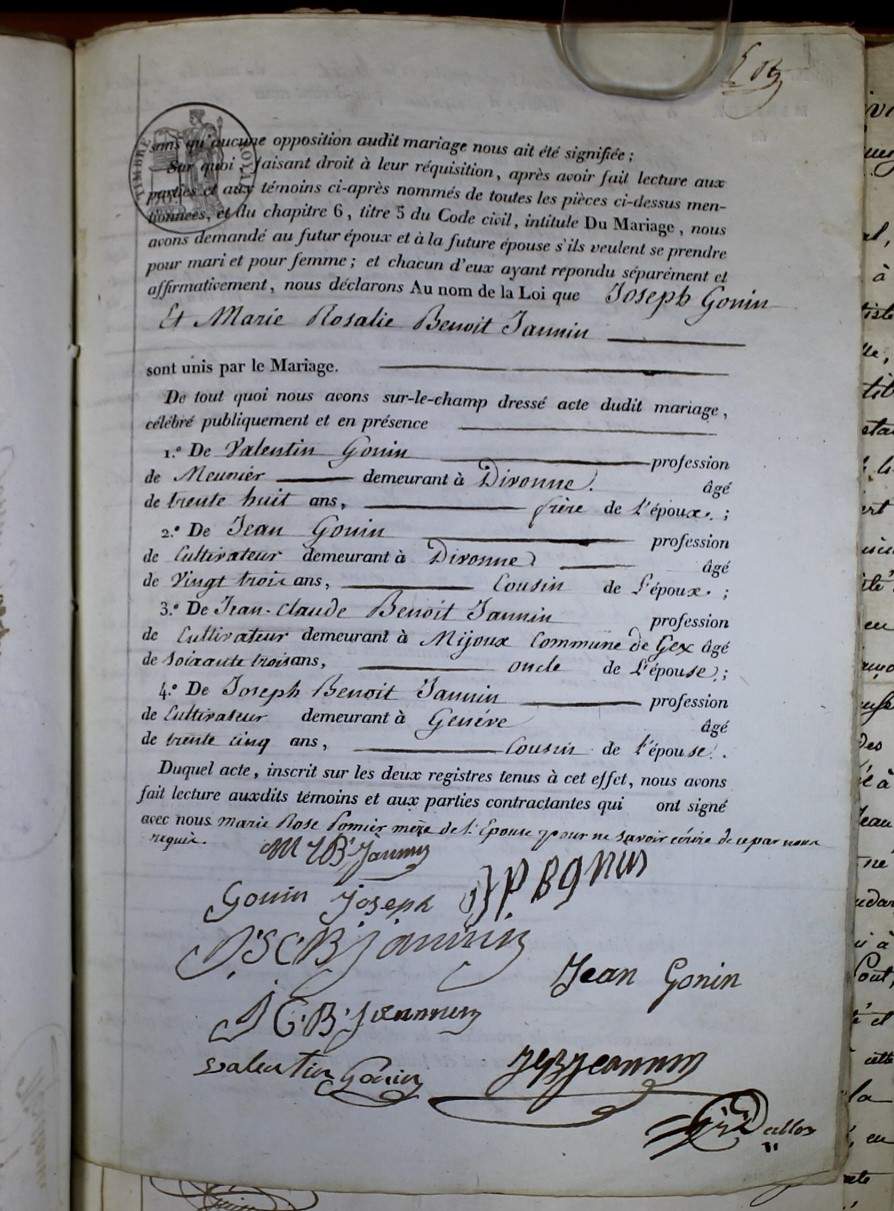 TIMBRE ROYAL
sans qu'aucune opposition audit mariage nous ait été signifiée ;
Sur quoi faisant droit à leur réquisition, après avoir fait lecture aux
parties et aux témoins ci-après nommés de toutes les pièces ci-dessus men-
tionnées, et du chapitre 6, titre 5 du Code civil, intitule Du Mariage, nous
avons demandé au futur époux et à la future épouse s'ils veulent se prendre
pour mari et pour femme ; et chacun d'eux ayant repondu séparément et
affirmativement, nous déclarons Au nom de la Loi que Joseph Gonin
Et Marie Rosalie Benoit Jannin
sont unis par le Mariage.
De tout quoi nous avons sur-le-champ dressé acte dudit mariage,
célébré publiquement et en présence
1.º De Valentin Gonin profession
de Meunier demeurant à Divonne. âgé
de trente huit ans, frère de l'époux. ;
2.º De Jean Gonin profession
de Cultivateur demeurant à Divonne âgé
de Vingt trois ans, Cousin de l'époux. ;
3.º De Jean-Claude Benoit Jannin profession
de Cultivateur demeurant à Mijoux Commune de Gex âgé
de Soixante trois ans, oncle de l'épouse ;
4.º De Joseph Benoit Jannin profession
de Cultivateur demeurant à Genéve âgé
de trente cinq ans, Cousin de l'épouse.
Duquel acte, inscrit sur les deux registres tenus à cet effet, nous avons
fait lecture auxdits témoins et aux parties contractantes qui ont signé
avec nous marie Rose Pomier mère de l'Epouse pour ne savoir écrire de ce par nous
requise.
M R B Jannin
Gonin Joseph
J S C B Jannin
Jean Gonin
J C B Jeannin
Valentin Gonin
J B Jeannin